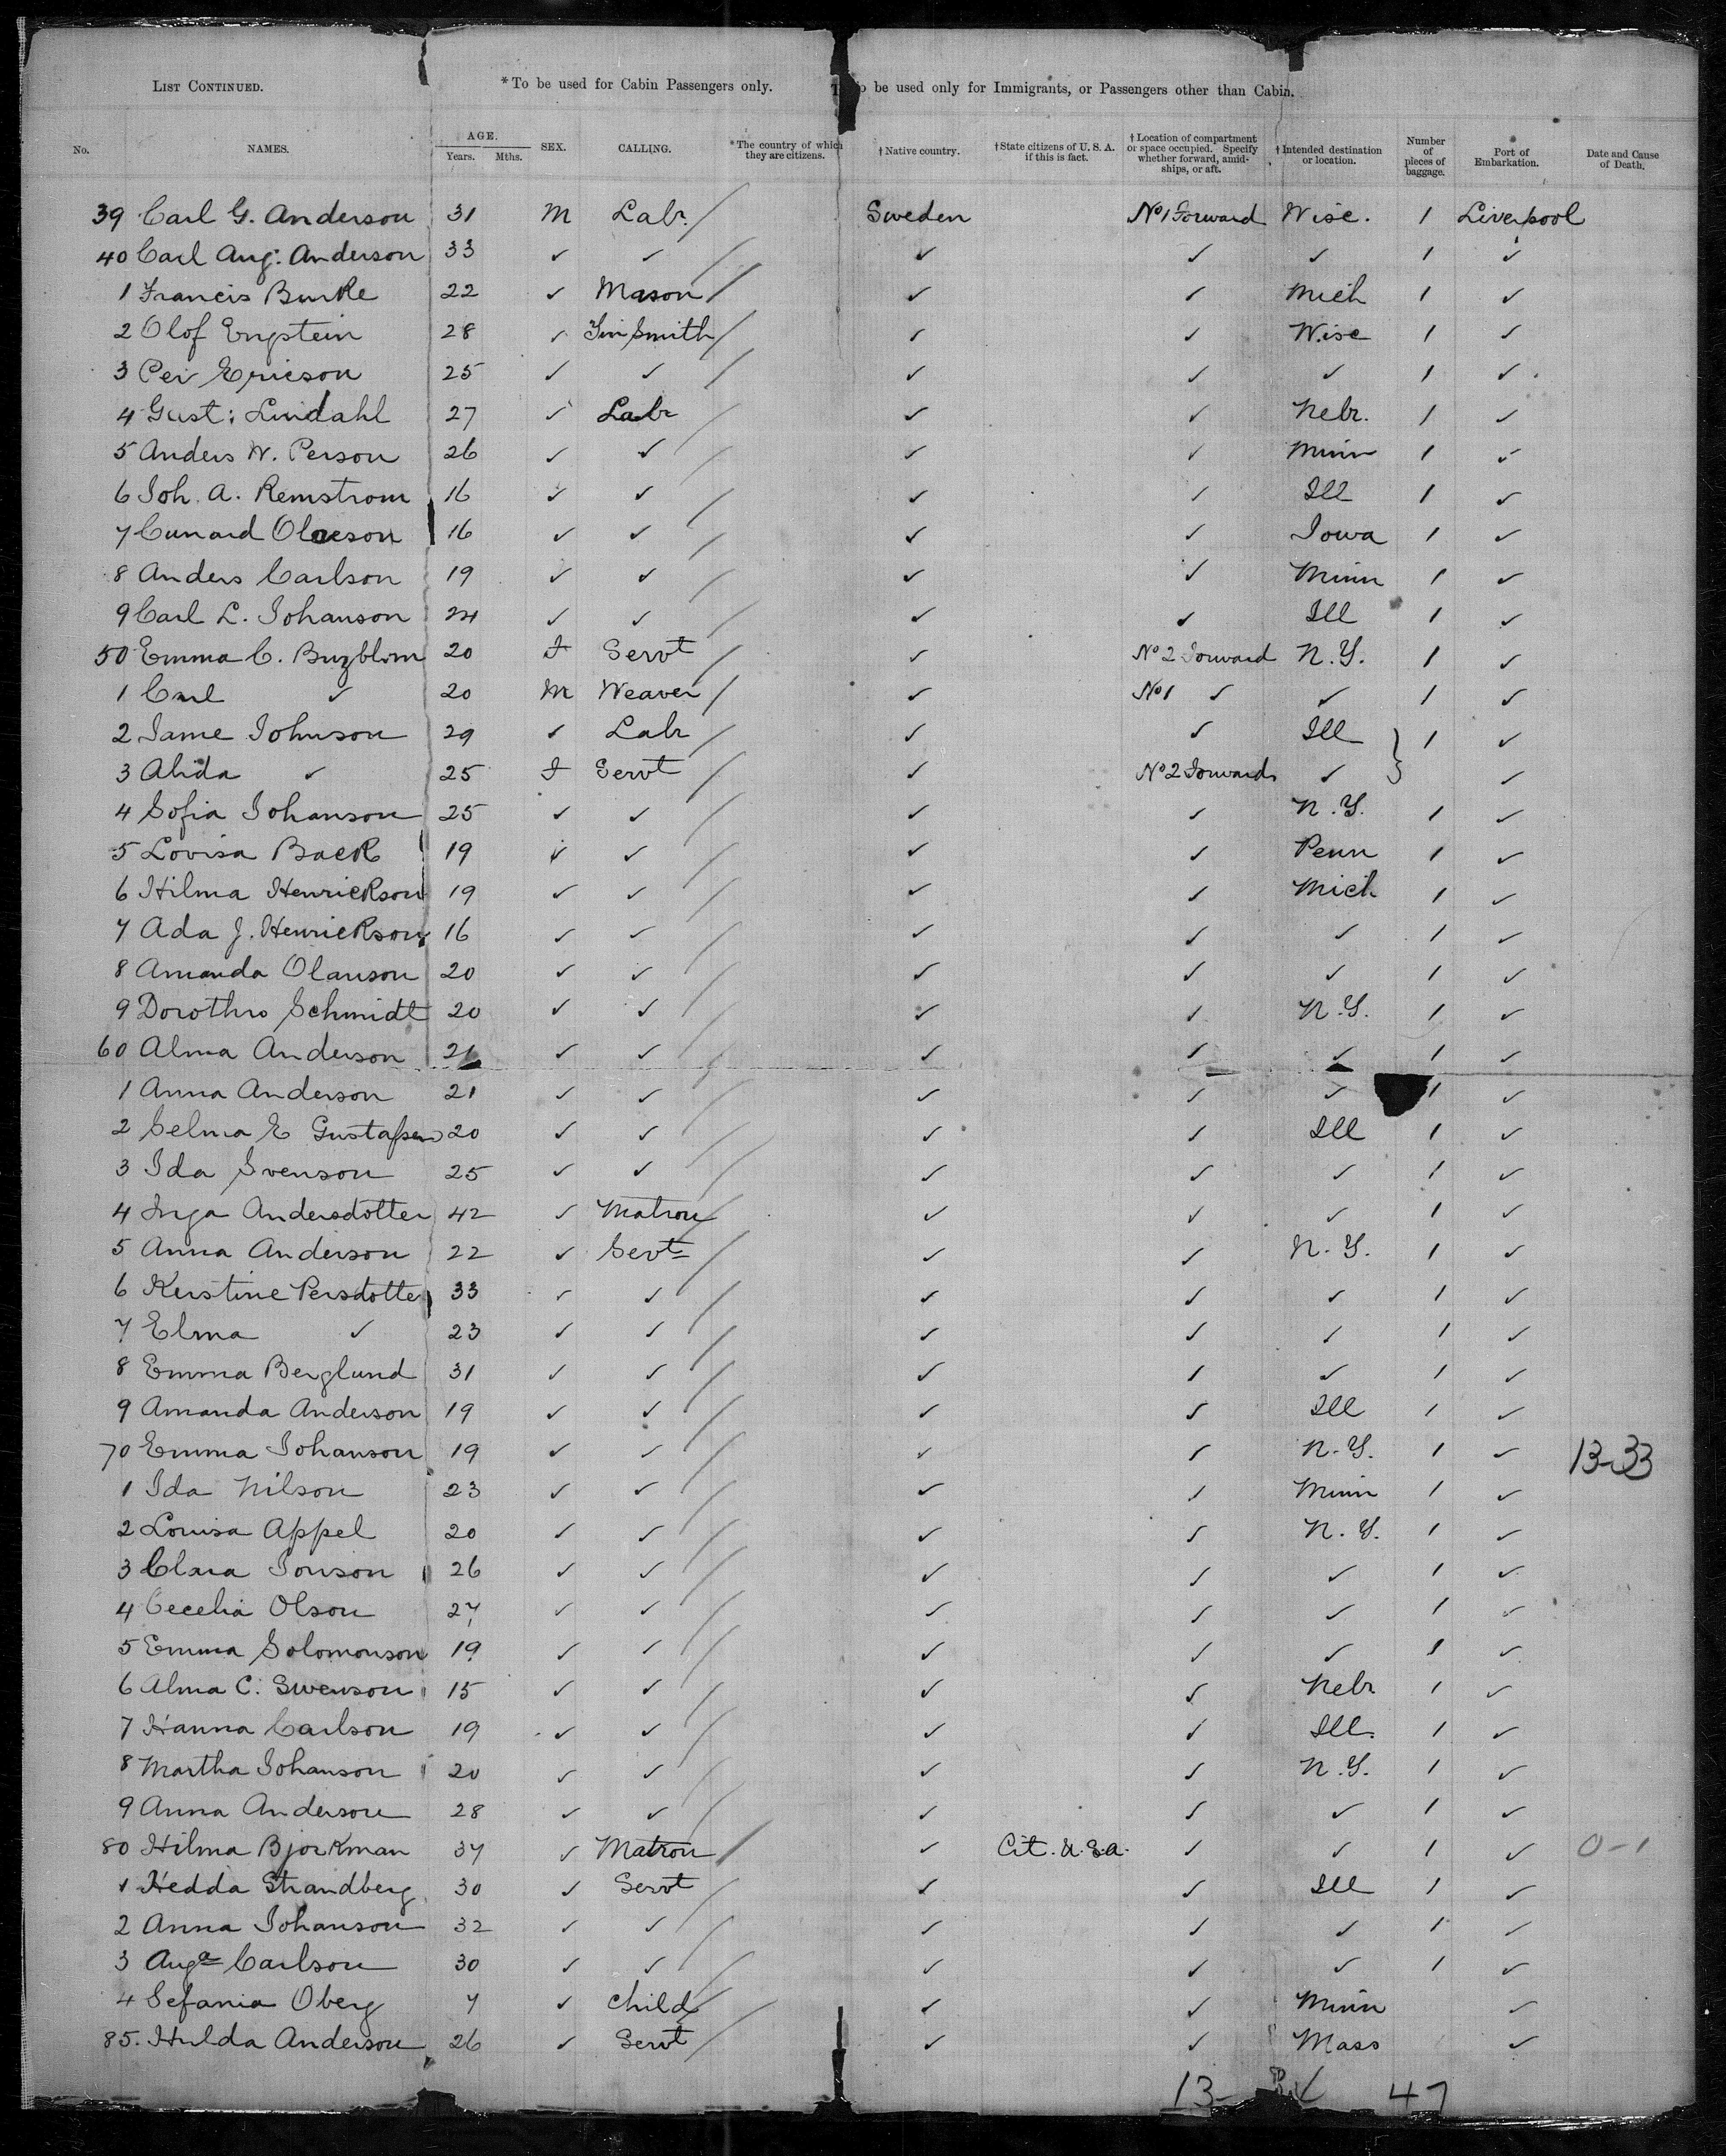 LIST CONTINUED. * To be used for Cabin Passengers only. be used only for Immigrants, or Passengers other than Cabin.
No. NAMES. AGE. Years. Mths. SEX. CALLING. * The country of which they are citizens. † Native country. † State citizens of U. S. A. if this is fact. † Location of compartment or space occupied. Specify whether forward, amidships, or aft. † Intended destination or location. Number of pieces of baggage. Port of Embarkation. Date and Cause of Death.
39 Carl G. Anderson 31 M Labr / Sweden No 1 Forward Wisc. 1 Liverpool
40 Carl Aug: Anderson 33 ✓ ✓ / ✓ ✓ ✓ 1 ✓
1 Francis Burke 22 ✓ Mason / ✓ ✓ Mich 1 ✓
2 Olof Engstein 28 ✓ Tin Smith / ✓ ✓ Wisc 1 ✓
3 Per Ericson 25 ✓ ✓ / ✓ ✓ ✓ 1 ✓
4 Gust: Lindahl 27 ✓ Labr / ✓ ✓ Nebr. 1 ✓
5 Anders W. Person 26 ✓ ✓ / ✓ ✓ Minn 1 ✓
6 Joh. A. Remstrom 16 ✓ ✓ / ✓ ✓ Ill 1 ✓
7 Cunard Olaeson 16 ✓ ✓ / ✓ ✓ Iowa 1 ✓
8 Anders Carlson 19 ✓ ✓ / ✓ ✓ Minn 1 ✓
9 Carl L. Johanson 24 ✓ ✓ / ✓ ✓ Ill 1 ✓
50 Emma C. 20 F Servt / ✓ No 2 Forward N.Y. 1 ✓
1 Carl ✓ 20 M Weaver / ✓ No 1 ✓ ✓ 1 ✓
2 Jame Johnson 29 ✓ Labr / ✓ ✓ Ill } 1 ✓
3 Alida ✓ 25 F Servt / ✓ No 2 Forward ✓ ✓
4 Sofia Johanson 25 ✓ ✓ / ✓ ✓ N.Y. 1 ✓
5 Lovisa Back 19 ✓ ✓ / ✓ ✓ Penn 1 ✓
6 Hilma Henrickson 19 ✓ ✓ / ✓ ✓ Mich 1 ✓
7 Ada J. Henrickson 16 ✓ ✓ / ✓ ✓ ✓ 1 ✓
8 Amanda Olanson 20 ✓ ✓ / ✓ ✓ ✓ 1 ✓
9 Dorothro Schmidt 20 ✓ ✓ / ✓ ✓ N.Y. 1 ✓
60 Alma Anderson 21 ✓ ✓ / ✓ ✓ ✓ 1 ✓
1 Anna Anderson 21 ✓ ✓ / ✓ ✓ ✓ 1 ✓
2 Selma E Gustafsen 20 ✓ ✓ / ✓ ✓ Ill 1 ✓
3 Ida Svenson 25 ✓ ✓ / ✓ ✓ ✓ 1 ✓
4 Inga Andersdotter 42 ✓ Matron / ✓ ✓ ✓ 1 ✓
5 Anna Anderson 22 ✓ Servt / ✓ ✓ N.Y. 1 ✓
6 Kerstine Persdotter 33 ✓ ✓ / ✓ ✓ ✓ 1 ✓
7 Elma ✓ 23 ✓ ✓ / ✓ ✓ ✓ 1 ✓
8 Emma Berglund 31 ✓ ✓ / ✓ ✓ ✓ 1 ✓
9 Amanda Anderson 19 ✓ ✓ / ✓ ✓ Ill 1 ✓
70 Emma Johanson 19 ✓ ✓ / ✓ ✓ N.Y. 1 ✓ 13-33
1 Ida Nilson 23 ✓ ✓ / ✓ ✓ Minn 1 ✓
2 Louisa Appel 20 ✓ ✓ / ✓ ✓ N.Y. 1 ✓
3 Clara Jonson 26 ✓ ✓ / ✓ ✓ ✓ 1 ✓
4 Cecelia Olson 27 ✓ ✓ / ✓ ✓ ✓ 1 ✓
5 Emma Solomonson 19 ✓ ✓ / ✓ ✓ ✓ 1 ✓
6 Alma C. Swenson 15 ✓ ✓ / ✓ ✓ Nebr 1 ✓
7 Hanna Carlson 19 ✓ ✓ / ✓ ✓ Ill. 1 ✓
8 Martha Johanson 20 ✓ ✓ / ✓ ✓ N.Y. 1 ✓
9 Anna Anderson 28 ✓ ✓ / ✓ ✓ ✓ 1 ✓
80 Hilma Bjorkman 37 ✓ Matron / ✓ Cit. U.S.A. ✓ ✓ 1 ✓ 0-1
1 Hedda Strandberg 30 ✓ Servt / ✓ ✓ Ill 1 ✓
2 Anna Johanson 32 ✓ ✓ / ✓ ✓ ✓ 1 ✓
3 Auga Carlson 30 ✓ ✓ / ✓ ✓ ✓ 1 ✓
4 Sefania Oberg 7 ✓ Child / ✓ ✓ Minn ✓
85. Hulda Anderson 26 ✓ Servt / ✓ ✓ Mass ✓
13- 47